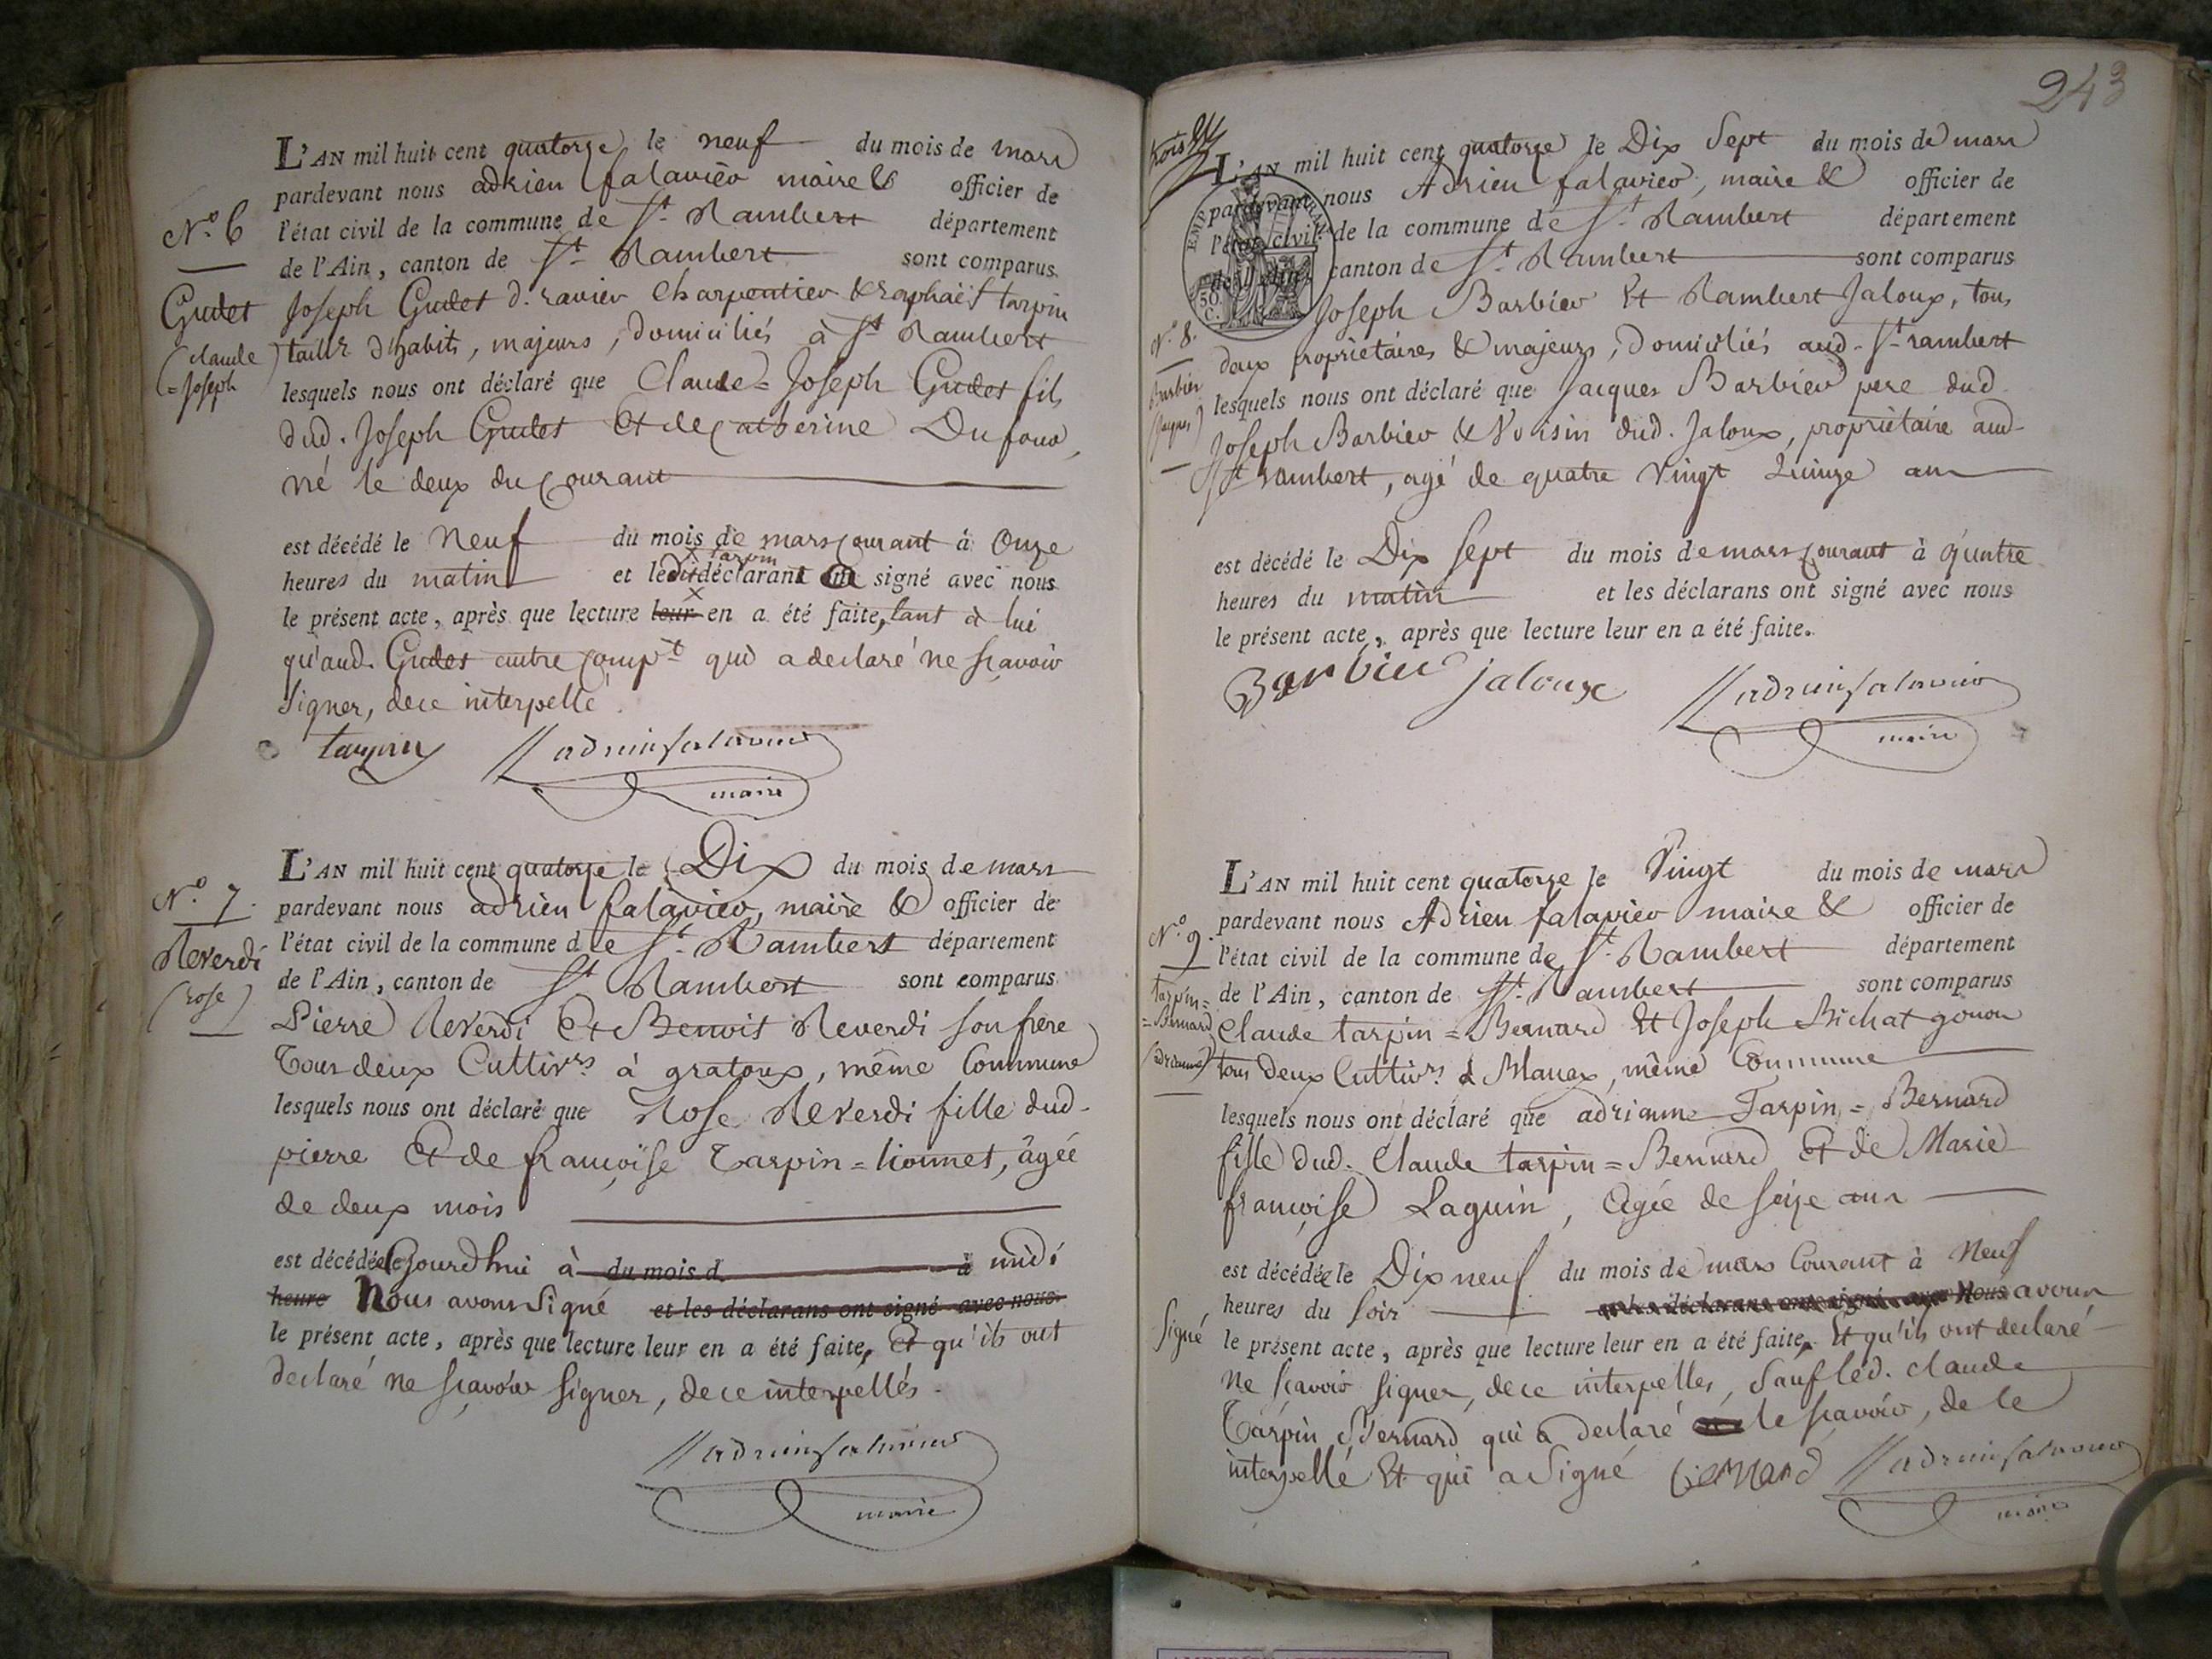 L'AN mil huit cent quatorze le neuf du mois de mars
pardevant nous adrien falavier maire & officier de
N.º 6
l'état civil de la commune de St Rambert département
de l'Ain, canton de St Rambert sont comparus
Gudet
(claude
= Joseph)
Joseph Gudet d. ravier Charpentier & raphaël tarpin
tailleur d'habits, majeurs, domiciliés à St Rambert
lesquels nous ont déclaré que Claude = Joseph Gudet fils
dud. Joseph Gudet et de Catherine Dufour,
né le deux du courant
est décédé le neuf du mois de mars courant à onze
tarpin
heures du matin et ledit déclarant a signé avec nous
le présent acte, après que lecture leur en a été faite, tant à lui
qu'aud. Gudet autre compt qui a declaré ne sçavoir
signer, de ce interpellé.
tarpin adrien falavier
maire
L'AN mil huit cent quatorze le Dix du mois de mars
N.º 7.
pardevant nous adrien falavier, maire & officier de
Reverdi
(rose)
l'état civil de la commune de St Rambert département
de l'Ain, canton de St Rambert sont comparus
Pierre Reverdi Et Benoit Reverdi son frere
Tous deux Cultivrs à gratoux, même Commune
lesquels nous ont déclaré que Rose Reverdi fille dud.
pierre Et de françoise Tarpin = lionnet, âgée
de deux mois
est décédée cejourdhui à du mois d à midi
heure Nous avons signé et les déclarans ont signé avec nous
le présent acte, après que lecture leur en a été faite, Et qu'ils ont
declaré ne sçavoir signer, de ce interpellés.
adrien falavier
maire
243
L'AN mil huit cent quatorze le Dix Sept du mois de mars
pardevant nous Adrien falavier, maire & officier de
l'état civil de la commune de St Rambert département
de l'Ain, canton de St Rambert sont comparus
EMP
50
C.
N.º 8.
Barbier
(Jaques)
Joseph Barbier Et Rambert Jaloux, tous
deux propriétaires & majeurs, domiciliés aud. St rambert
lesquels nous ont déclaré que Jacques Barbier pere dud.
Joseph Barbier & Voisin dud. Jaloux, propriétaire aud.
St rambert, agé de quatre Vingt Quinze ans
est décédé le Dix sept du mois de mars courant à quatre
heures du matin et les déclarans ont signé avec nous
le présent acte, après que lecture leur en a été faite.
Barbier jaloux adrien falavier
maire
L'AN mil huit cent quatorze le Vingt du mois de mars
pardevant nous Adrien falavier maire & officier de
N.º 9.
l'état civil de la commune de St Rambert département
de l'Ain, canton de St Rambert sont comparus
tarpin =
= Bernard
(adrianne)
Claude tarpin = Bernard Et Joseph Bichat gonon
tous deux Cultivrs à Blanaz, même Commune
lesquels nous ont déclaré que adrianne Tarpin = Bernard
fille dud. Claude tarpin = Bernard Et de Marie
françoise Laguin, Agée de seize ans
est décédée le Dix neuf du mois de mars Courant à Neuf
heures du soir et les déclarans ont signé avec Nous avons
signé
le présent acte, après que lecture leur en a été faite, Et qu'ils ont declaré
ne sçavoir signer, de ce interpellés, Sauf led. claude
Tarpin Bernard qui a declaré le sçavoir, de ce
interpellé Et qui a signé Bernard adrien falavier
maire